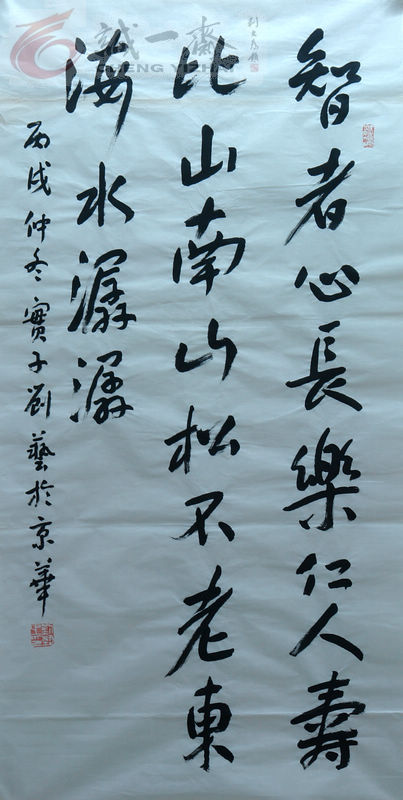 智者心長樂仁人壽
比山南山松不老東
海水潺潺
丙戌仲冬寶子劉藝於京華
誠一齋
CHENG YI ZHAI